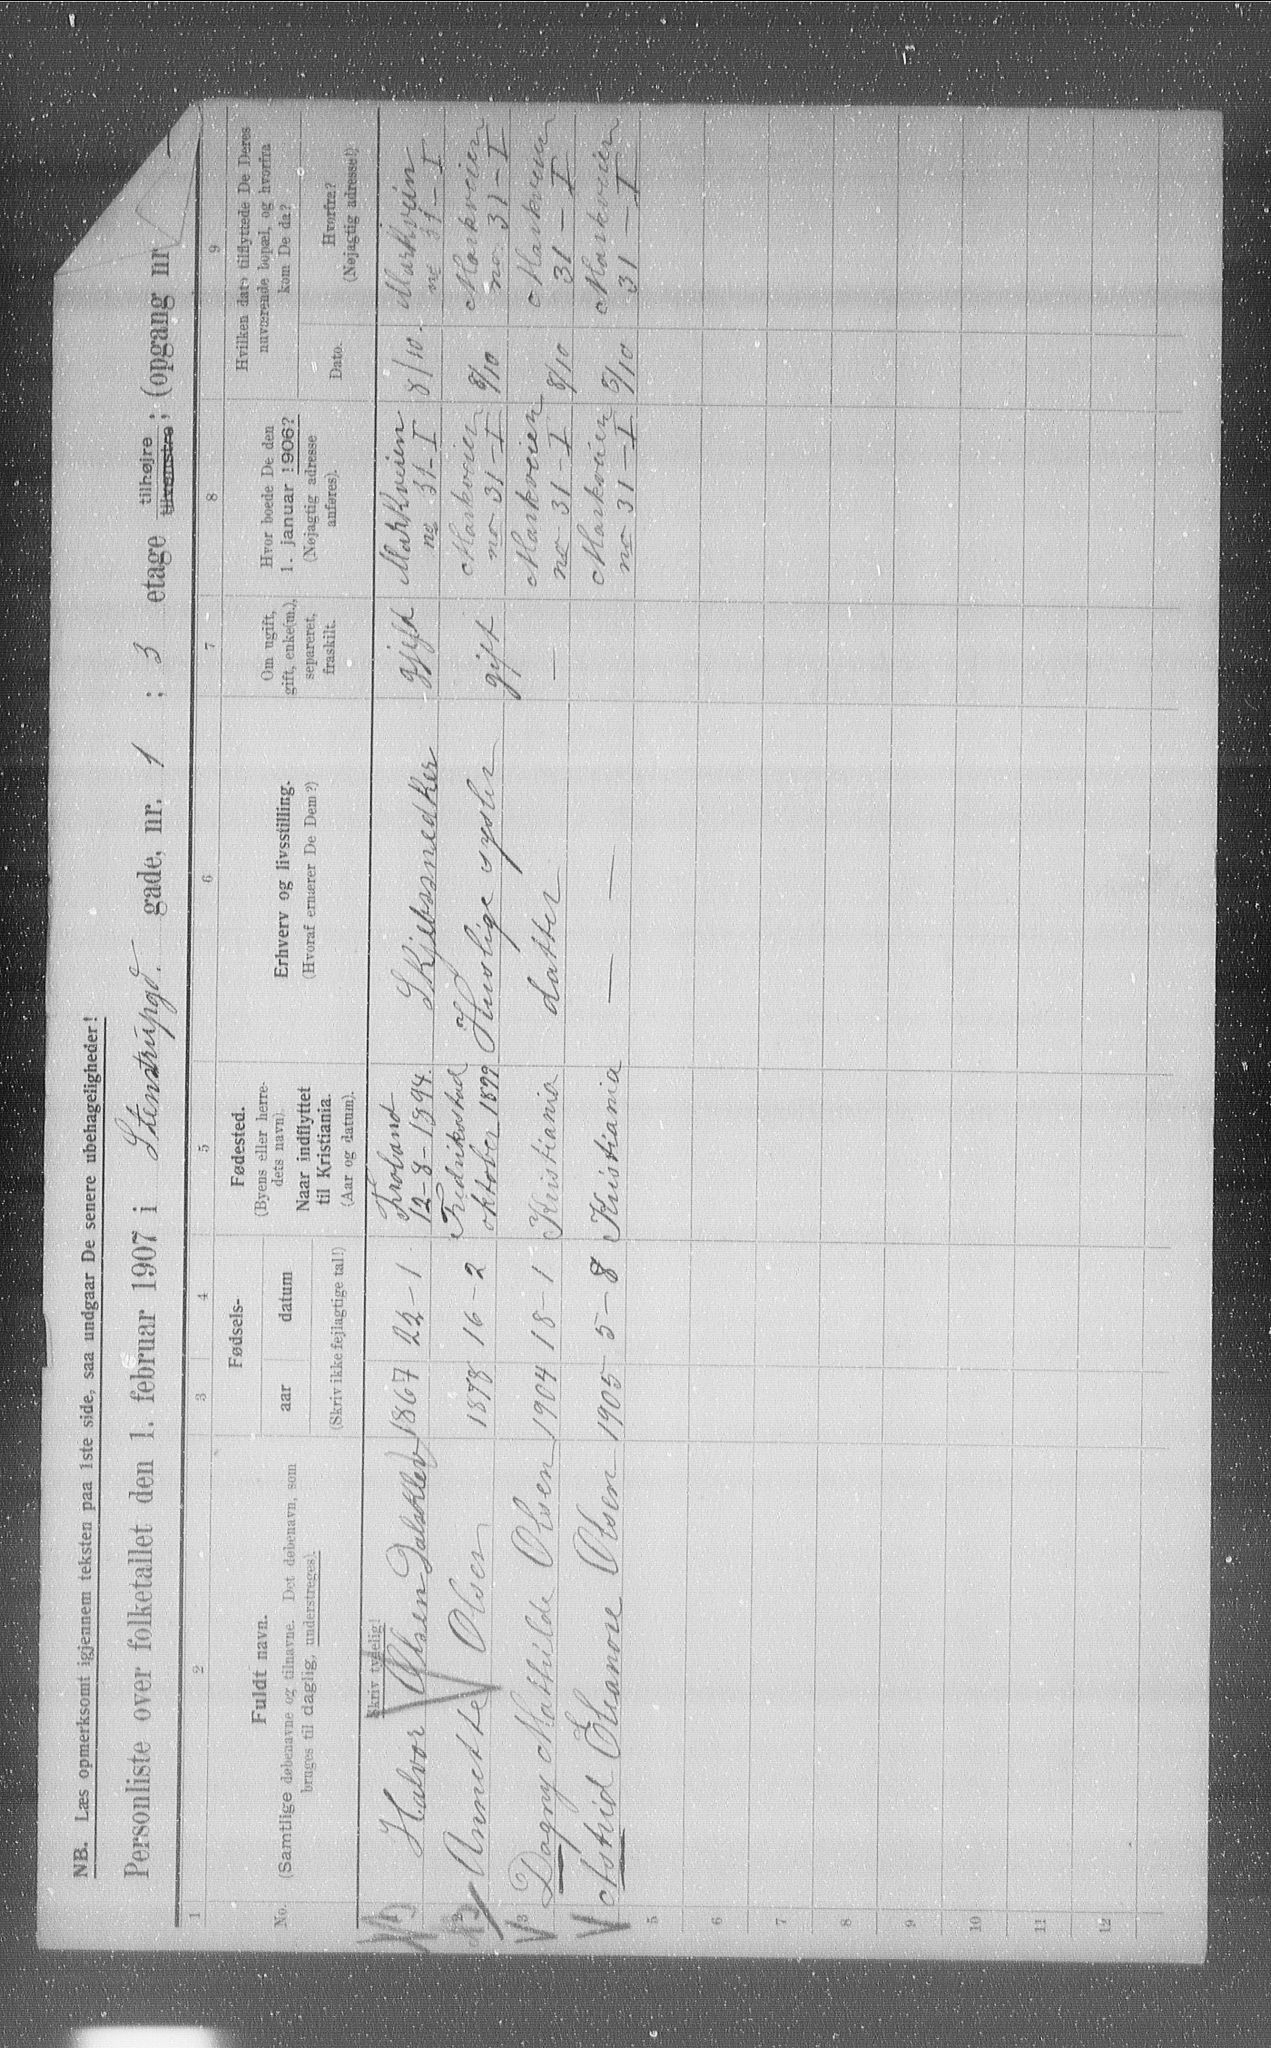 NB. Læs opmerksomt igjennem teksten paa 1ste side, saa undgaar De senere ubehageligheder!
Personliste over folketallet den 1. februar 1907 i Stenstrupgd. gade, nr. 1 ; 3 etage tilhøjre ; (opgang nr —
tilvenstre
1 2 3 4 5 6 7 8 9
No.
Fuldt navn.
(Samtlige døbenavne og tilnavne. Det døbenavn, som
bruges til daglig, understreges).
Skriv tydelig!
Fødsels-
aar datum
(Skriv ikke fejlagtige tal!)
Fødested.
(Byens eller herre-
dets navn).
Naar indflyttet
til Kristiania.
(Aar og datum).
Erhverv og livsstilling.
(Hvoraf ernærer De Dem?)
Om ugift,
gift, enke(m.),
separeret,
fraskilt.
Hvor boede De den
1. januar 1906?
(Nøjagtig adresse
anføres).
Hvilken dato tilflyttede De Deres
nuværende bopæl, og hvorfra
kom De da?
Dato.
Hvorfra?
(Nøjagtig adresse!)
1 Halvor Olsen Dalsklev 1867 22 – 1 Froland 12-8-1894. Skibssnedker gift Markveien no 31 – I 8/10. Markveien no 31 – I
2 Annette Olsen 1878 16 – 2 Fredrikstad oktober 1899 Huslige sysler gift Markveien no 31 – I 8/10 Markveien no 31 – I
3 Dagny Mathilde Olsen 1904 18 – 1 Kristiania datter — Markveien no 31 – I 8/10 Markveien 31 – I
Astrid Eleanore Olsen 1905 5 – 8 Kristiania — — Markveien no 31 – I 8/10 Markveien 31 – I
5
6
7
8
9
10
11
12